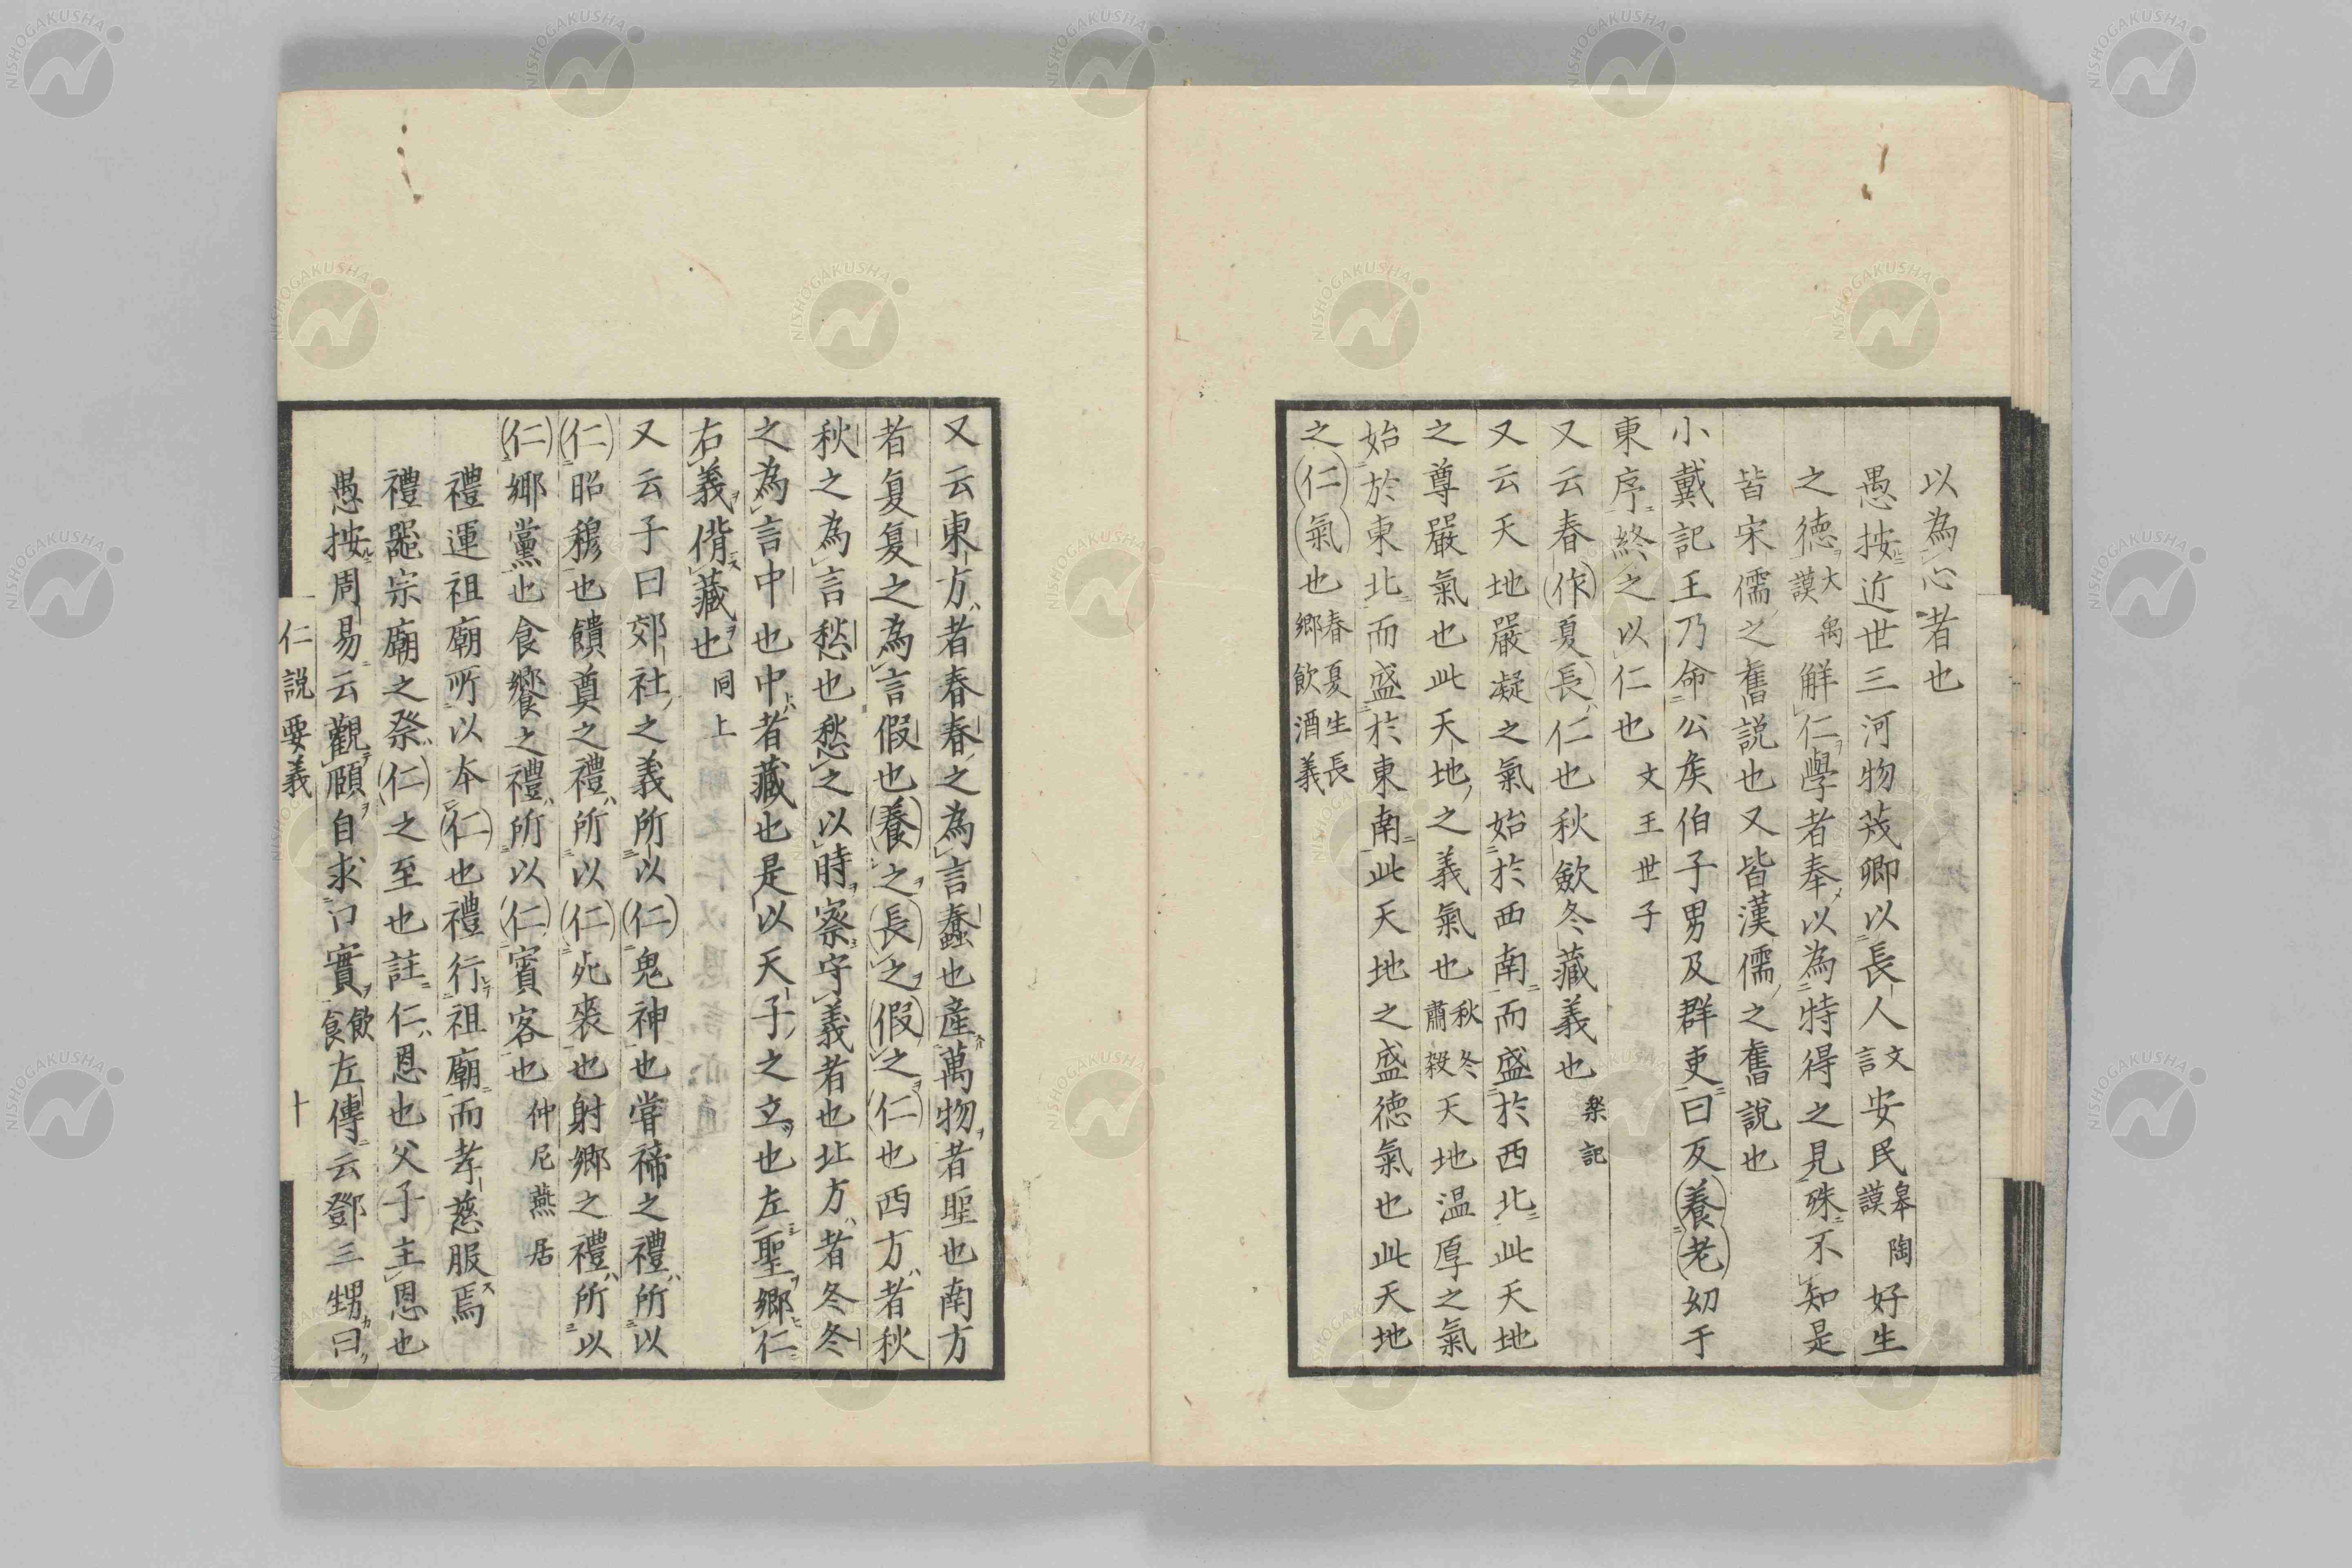 以為心者也
愚按近世三河物茂卿以長人文言安民皋陶謨好生
之德大禹謨解仁學者奉以為特得之見殊不知是
皆宋儒之舊説也又皆漢儒之舊說也
小戴記王乃命公矦伯子男及群吏曰反養老幼于
東序終之以仁也文王世子
又云春作夏長仁也秋斂冬藏義也楽記
又云天地嚴凝之氣始於西南而盛於西北此天地
之尊嚴氣也此天地之義氣也秋冬肅殺天地温厚之氣
始於東北而盛於東南此天地之盛德氣也此天地
之仁氣也春夏生長鄉飲酒義
又云東方者春春之為言蠢也産萬物者聖也南方
者夏夏之為言假也養之長之假之仁也西方者秋
秋之為言愁也愁之以時察守義者也北方者冬冬
之為言中也中者藏也是以天子之立也左聖鄉仁
右義偝藏也同上
又云子曰郊社之義所以仁鬼神也嘗禘之禮所以
仁昭穆也饋奠之禮所以仁死喪也射鄉之禮所以
仁鄉黨也食饗之禮所以仁賓客也仲尼燕居
禮運祖廟所以本仁也禮行祖廟而孝慈服焉
禮器宗廟之祭仁之至也註仁恩也父子主恩也
愚按周易云觀頤自求口實飲食左傳云鄧三甥曰
仁説要義
十
NISHOGAKUSHA